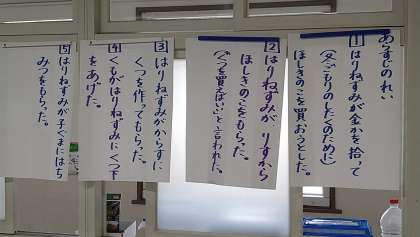 あらすじのれい
1 はりねずみが金かを拾って
(冬ごもりのしたくのために)
ほしきのこを買おうとした。
2 はりねずみが りすから
ほしきのこをもらった。
(「くつを買えばいい」と言われた。)
3 はりねずみがからすに
くつを作ってもらった。
4 くもがはりねずみにくつ下
をあげた。
5 はりねずみが子ぐまにはち
みつをもらった。